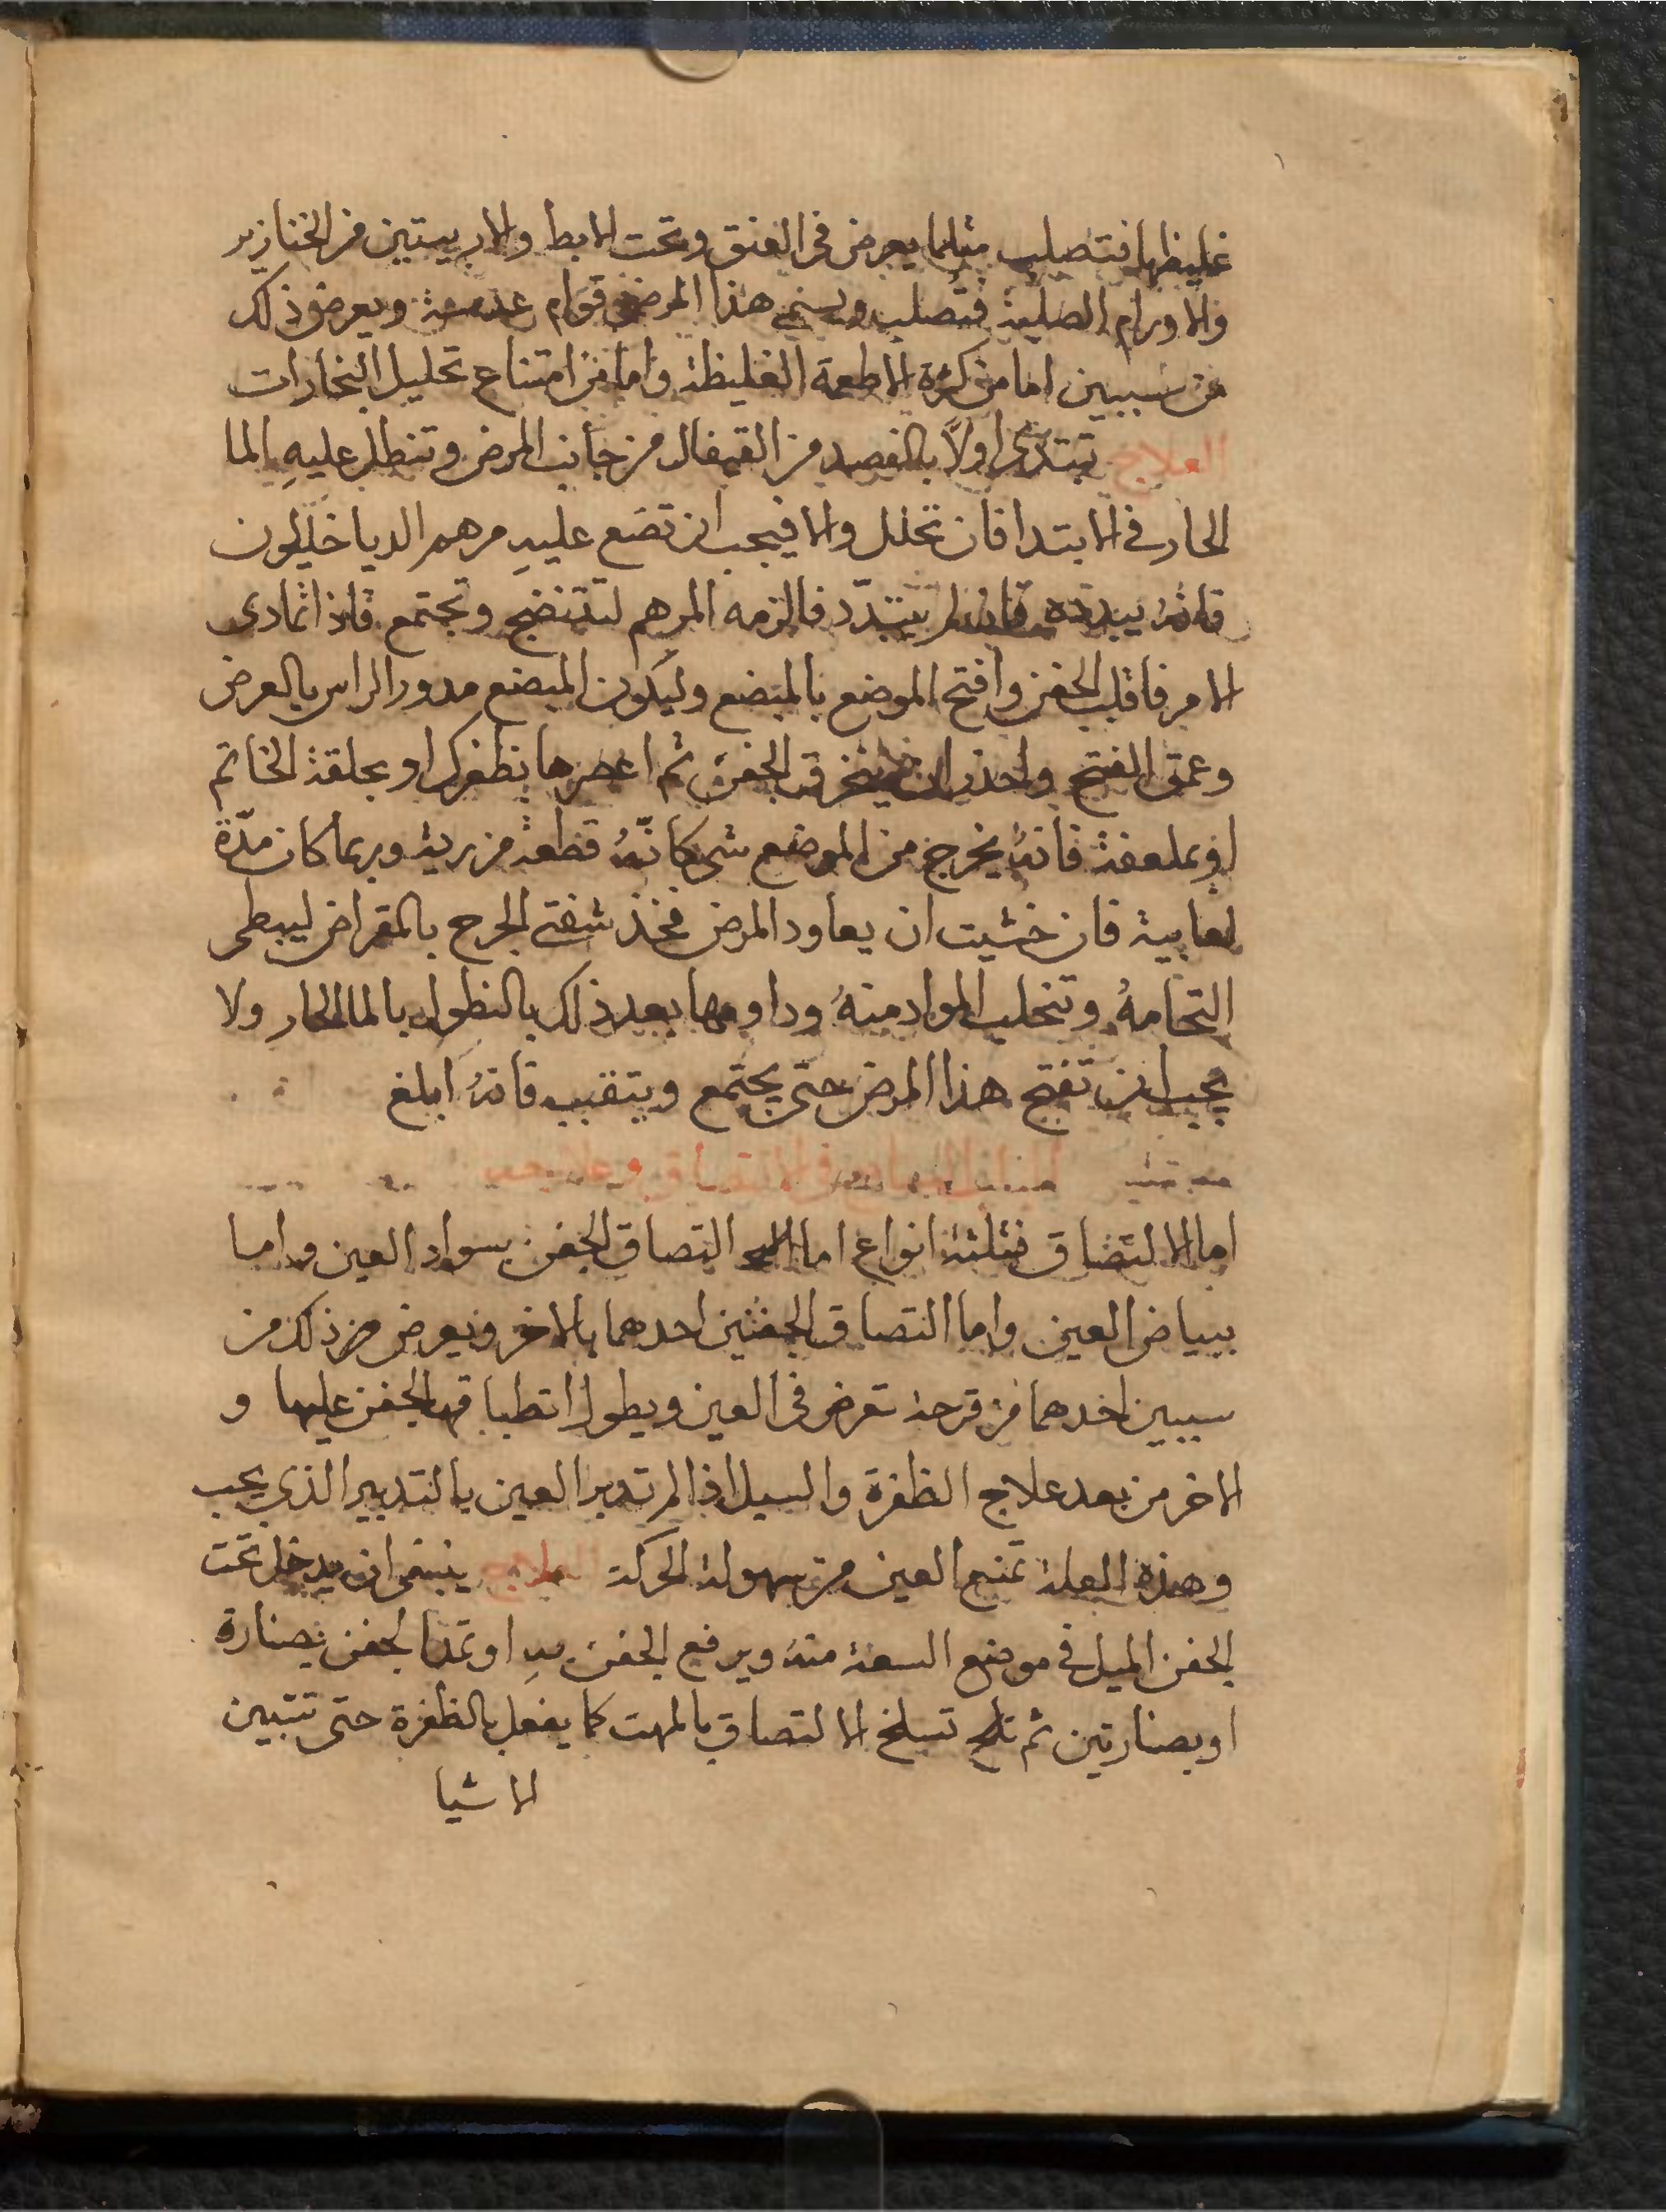 غليظها فتصلب مثلما يعرض فى العنق وتحت الابط والاربيتين من الخنازير
والاورام الصلبة فتصلب ويسمى هذا المرض قوام ويعرض ذلك
من سببين اما من كثرة الاطعمة الغليظة واما من امتناع تحليل البخارات
العلاج تبتدى اولاً بالفصد من القيفال من جانب المرض وتنطل عليهِ بالما
الحار فى الابتدا فان تحلل والا فيجب ان تضع عليهِ مرهم الدياخليلون
فانهُ يبدده فان لم يتبدّد فالزمه المرهم لتنضج وتجتمع فاذا تمادى
الامر فاقلب الجفن وافتح الموضع بالمبضع وليكون المبضع مدور الراس بالعرض
وعمق الفتح واحذر ان ينخرق الجفن ثم اعصرها بظفرك او بحلقة الخاتم
او بملعقة فانهُ يخرج من الموضع شى كانّهُ قطعة من رية وربما كان مدّة
لعابية فان خشيت ان يعاود المرض فخذ شفتى الجرح بالمقراض ليبطى
التحامهُ وتنحلب المواد منهُ وداومها بعد ذلك بالنطول بالما الحار ولا
يجب ان تفتح هذا المرض حتى يجتمع ويتقبب فانهُ ابلغ
فى الالتصاق وعلاجه
اما الالتصاق فثلثة انواع اما التصاق الجفن بسواد العين واما
ببياض العين واما التصاق الجفنين احدهما بالاخر ويعرض من ذلك من
سببين احدهما من قرحة تعرض فى العين ويطول انطباق الجفن عليها و
الاخر من بعد علاج الظفرة والسبل اذا لم تدبر العين بالتدبير الذي يجب
وهذه العلة تمنع العين من سهولة الحركة العلاج ينبغى ان يدخل تحت
الجفن الميل فى موضع السعة منهُ ويرفع الجفن بهِ او تمد الجفن بصنارة
او بصنارتين ثم تسلخ الالتصاق بالمهت كما يفعل بالظفرة حتى تتبين
الاشيا